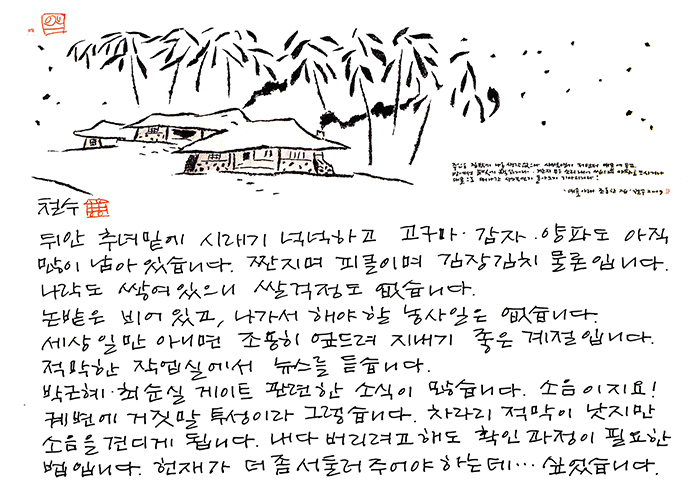 철수
뒤안 추녀밑에 시래기 넉넉하고 고구마·감자·양파도 아직
많이 남아 있습니다. 짠지며 피클이며 김장김치 물론입니다.
나락도 쌓여있으니 쌀걱정도 없습니다.
논밭은 비어 있고, 나가서 해야 할 농사일은 없습니다.
세상 일만 아니면 조용히 엎드려 지내기 좋은 계절입니다.
적막한 작업실에서 뉴스를 듣습니다.
박근혜·최순실 게이트 관련한 소식이 많습니다. 소음이지요!
궤변에 거짓말 투성이라 그렇습니다. 차라리 적막이 낫지만
소음을 견디게 됩니다. 내다 버리려고 해도 확인과정이 필요한
법입니다. 헌재가 더 좀 서둘러주어야 하는데… 싶었습니다.